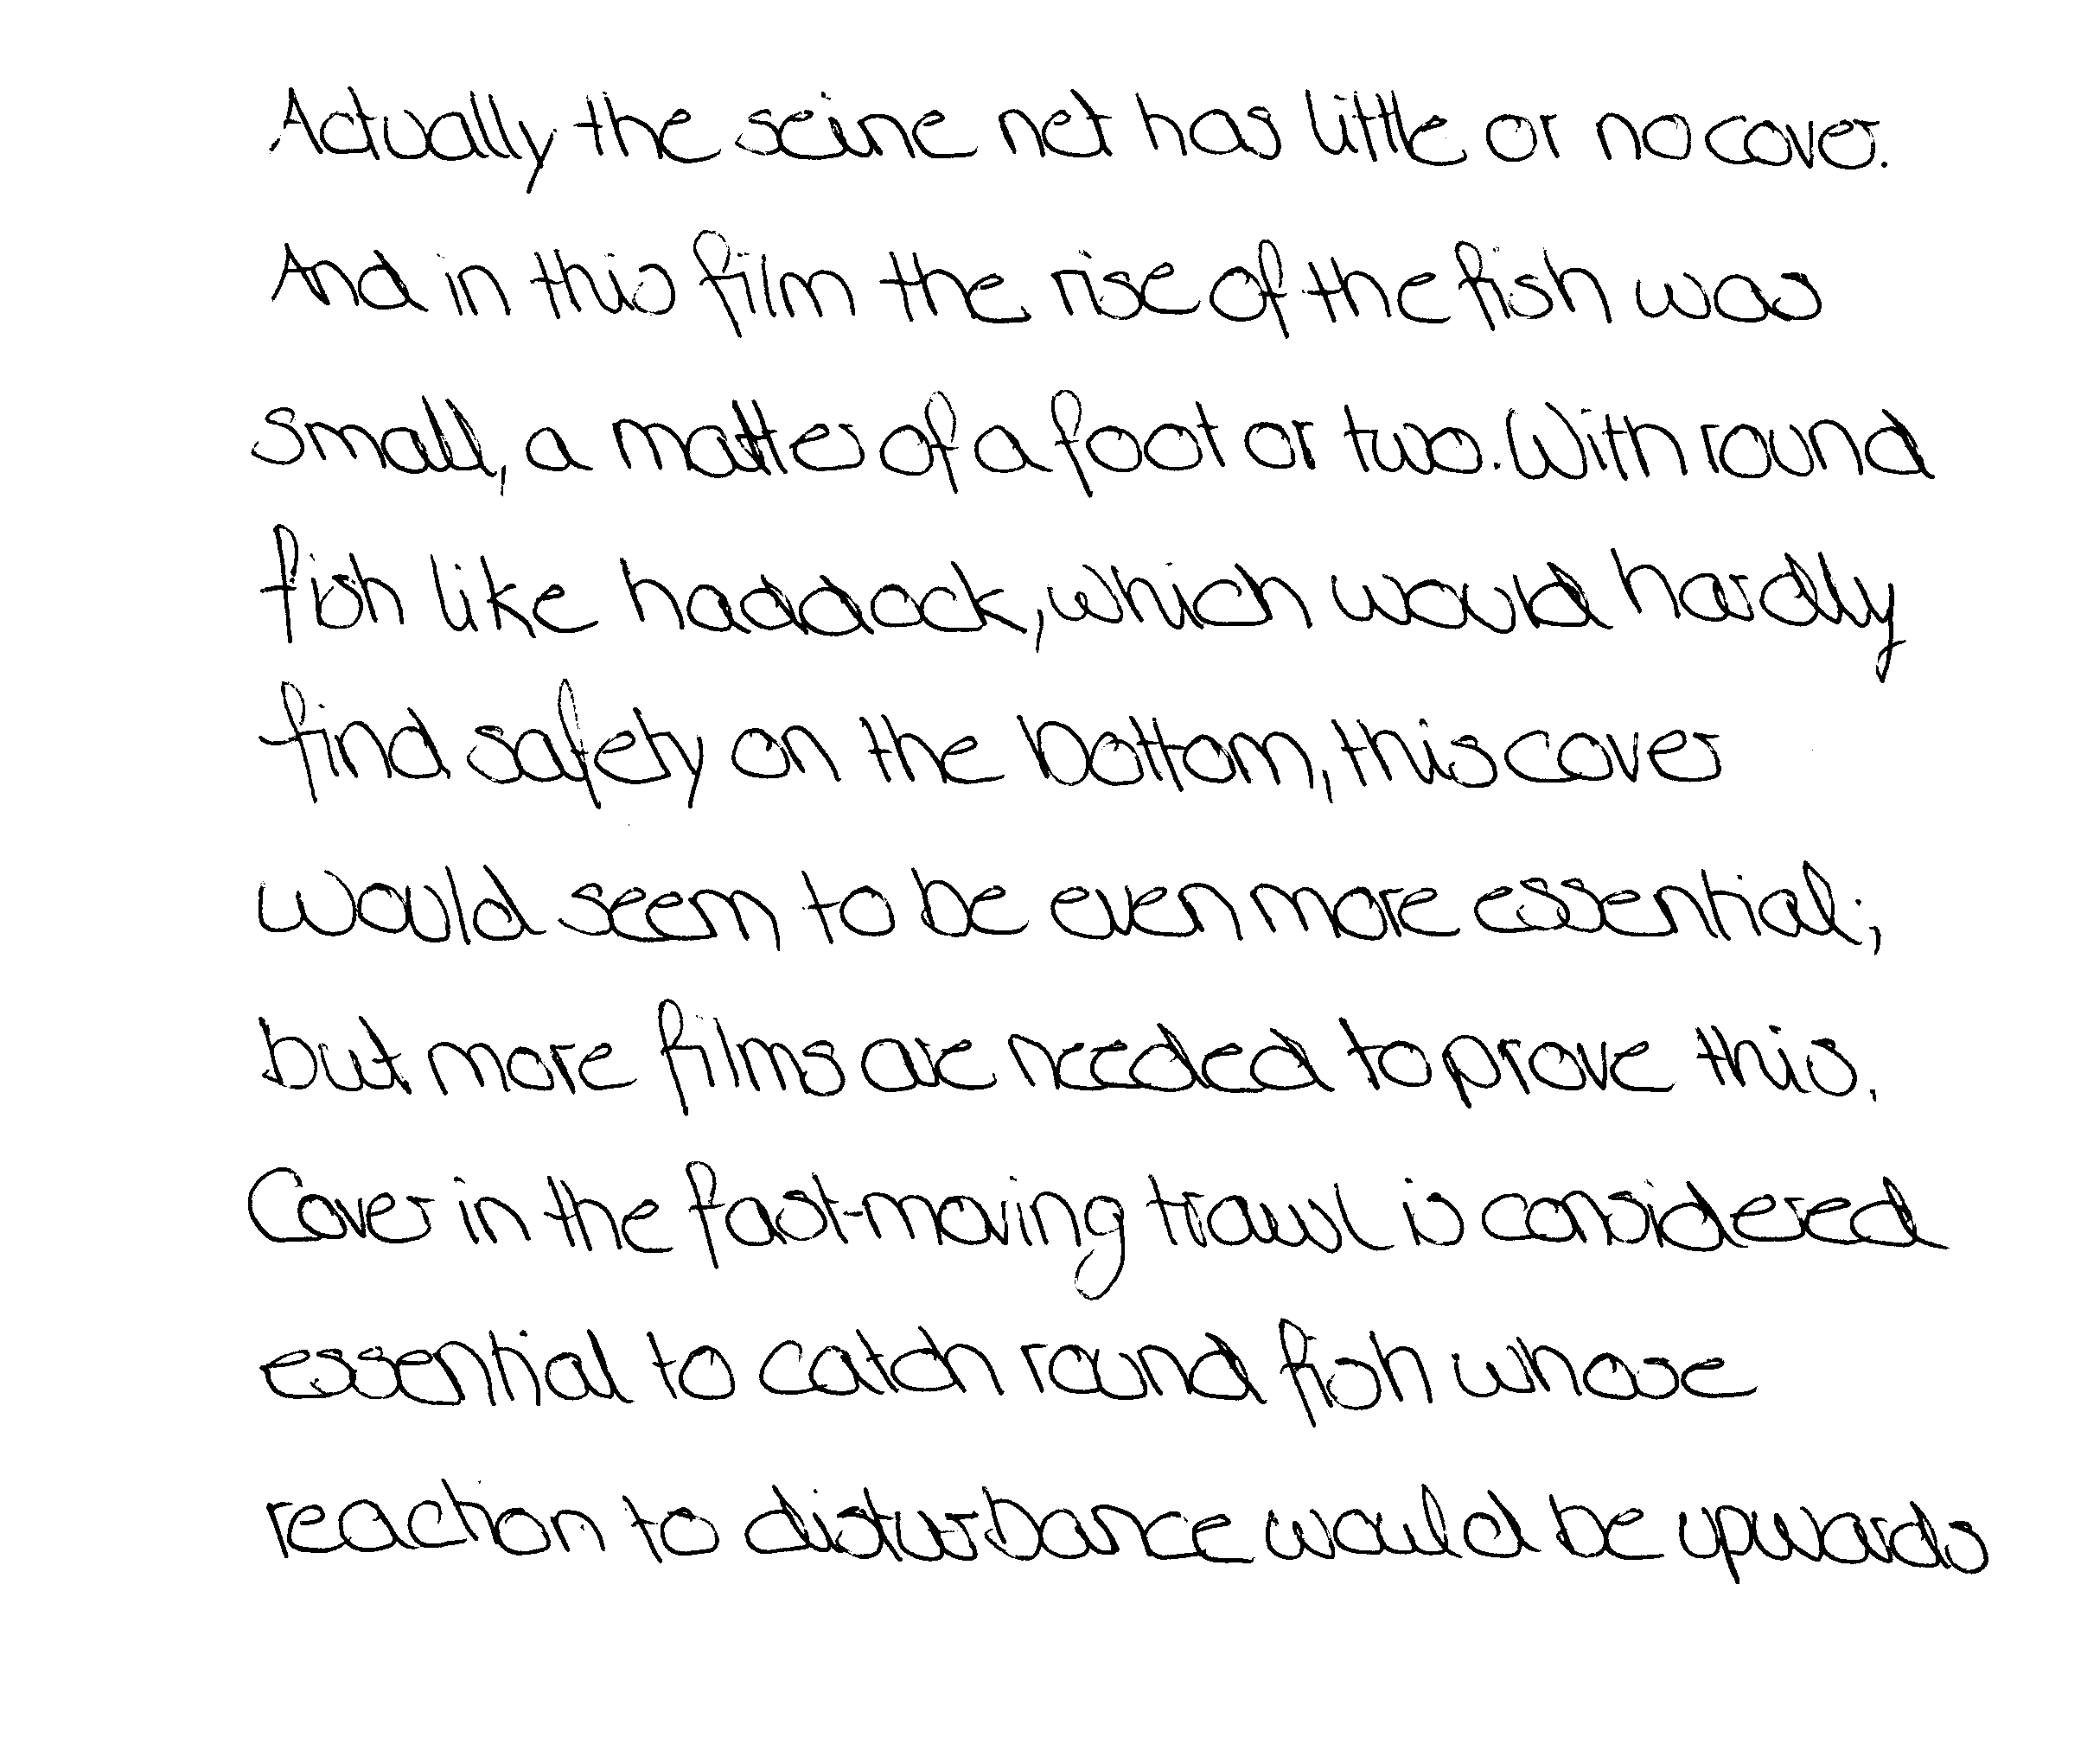 Actually the seine net has little or no cover.
And in this film the rise of the fish was
small, a matter of a foot or two. With round
fish like haddock, which would hardly
find safety on the bottom, this cover
would seem to be even more essential;
but more films are needed to prove this.
Cover in the fast-moving trawl is considered
essential to catch round fish whose
reaction to disturbance would be upwards